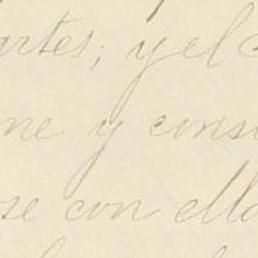 artes; y el c
ne y cons
se con ella